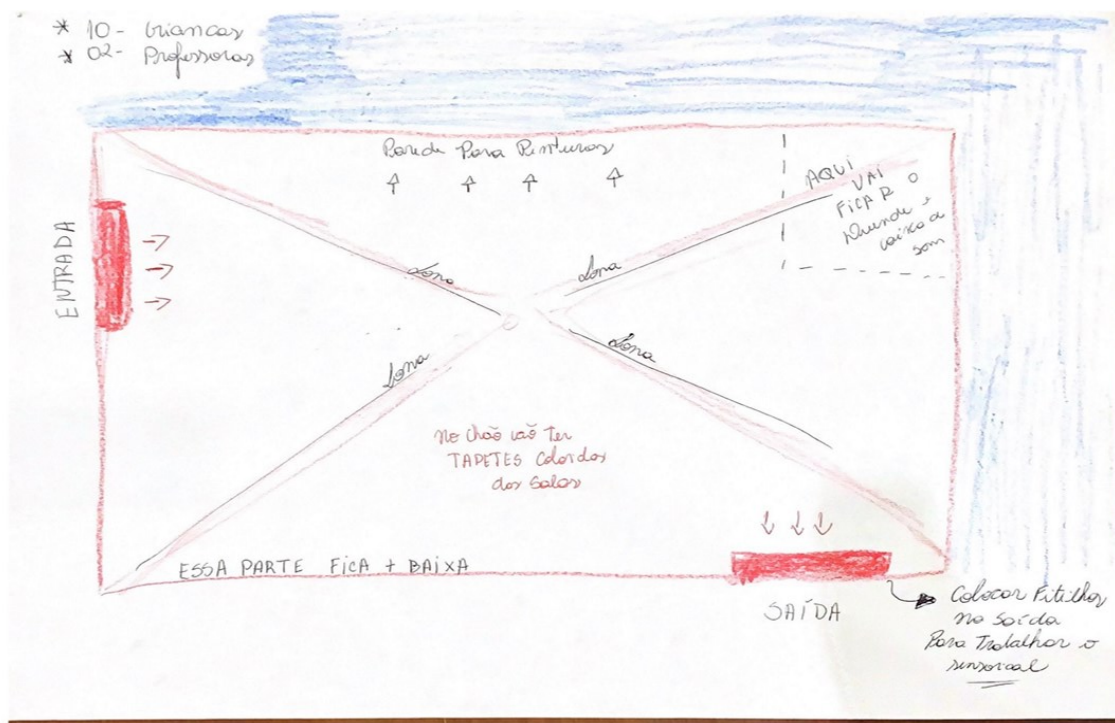 * 10- Crianças
* 02- Professoras
Parede Para Pinturas
AQUI
VAI
FICAR O
Duende +
caixa de
som
ENTRADA
Lona
Lona
Lona
Lona
No Chão vão Ter
TAPETES Coloridos
das Salas
ESSA PARTE FICA + BAIXA
SAÍDA
Colocar Fitilhos
na Saída
Para Trabalhar o
sensorial